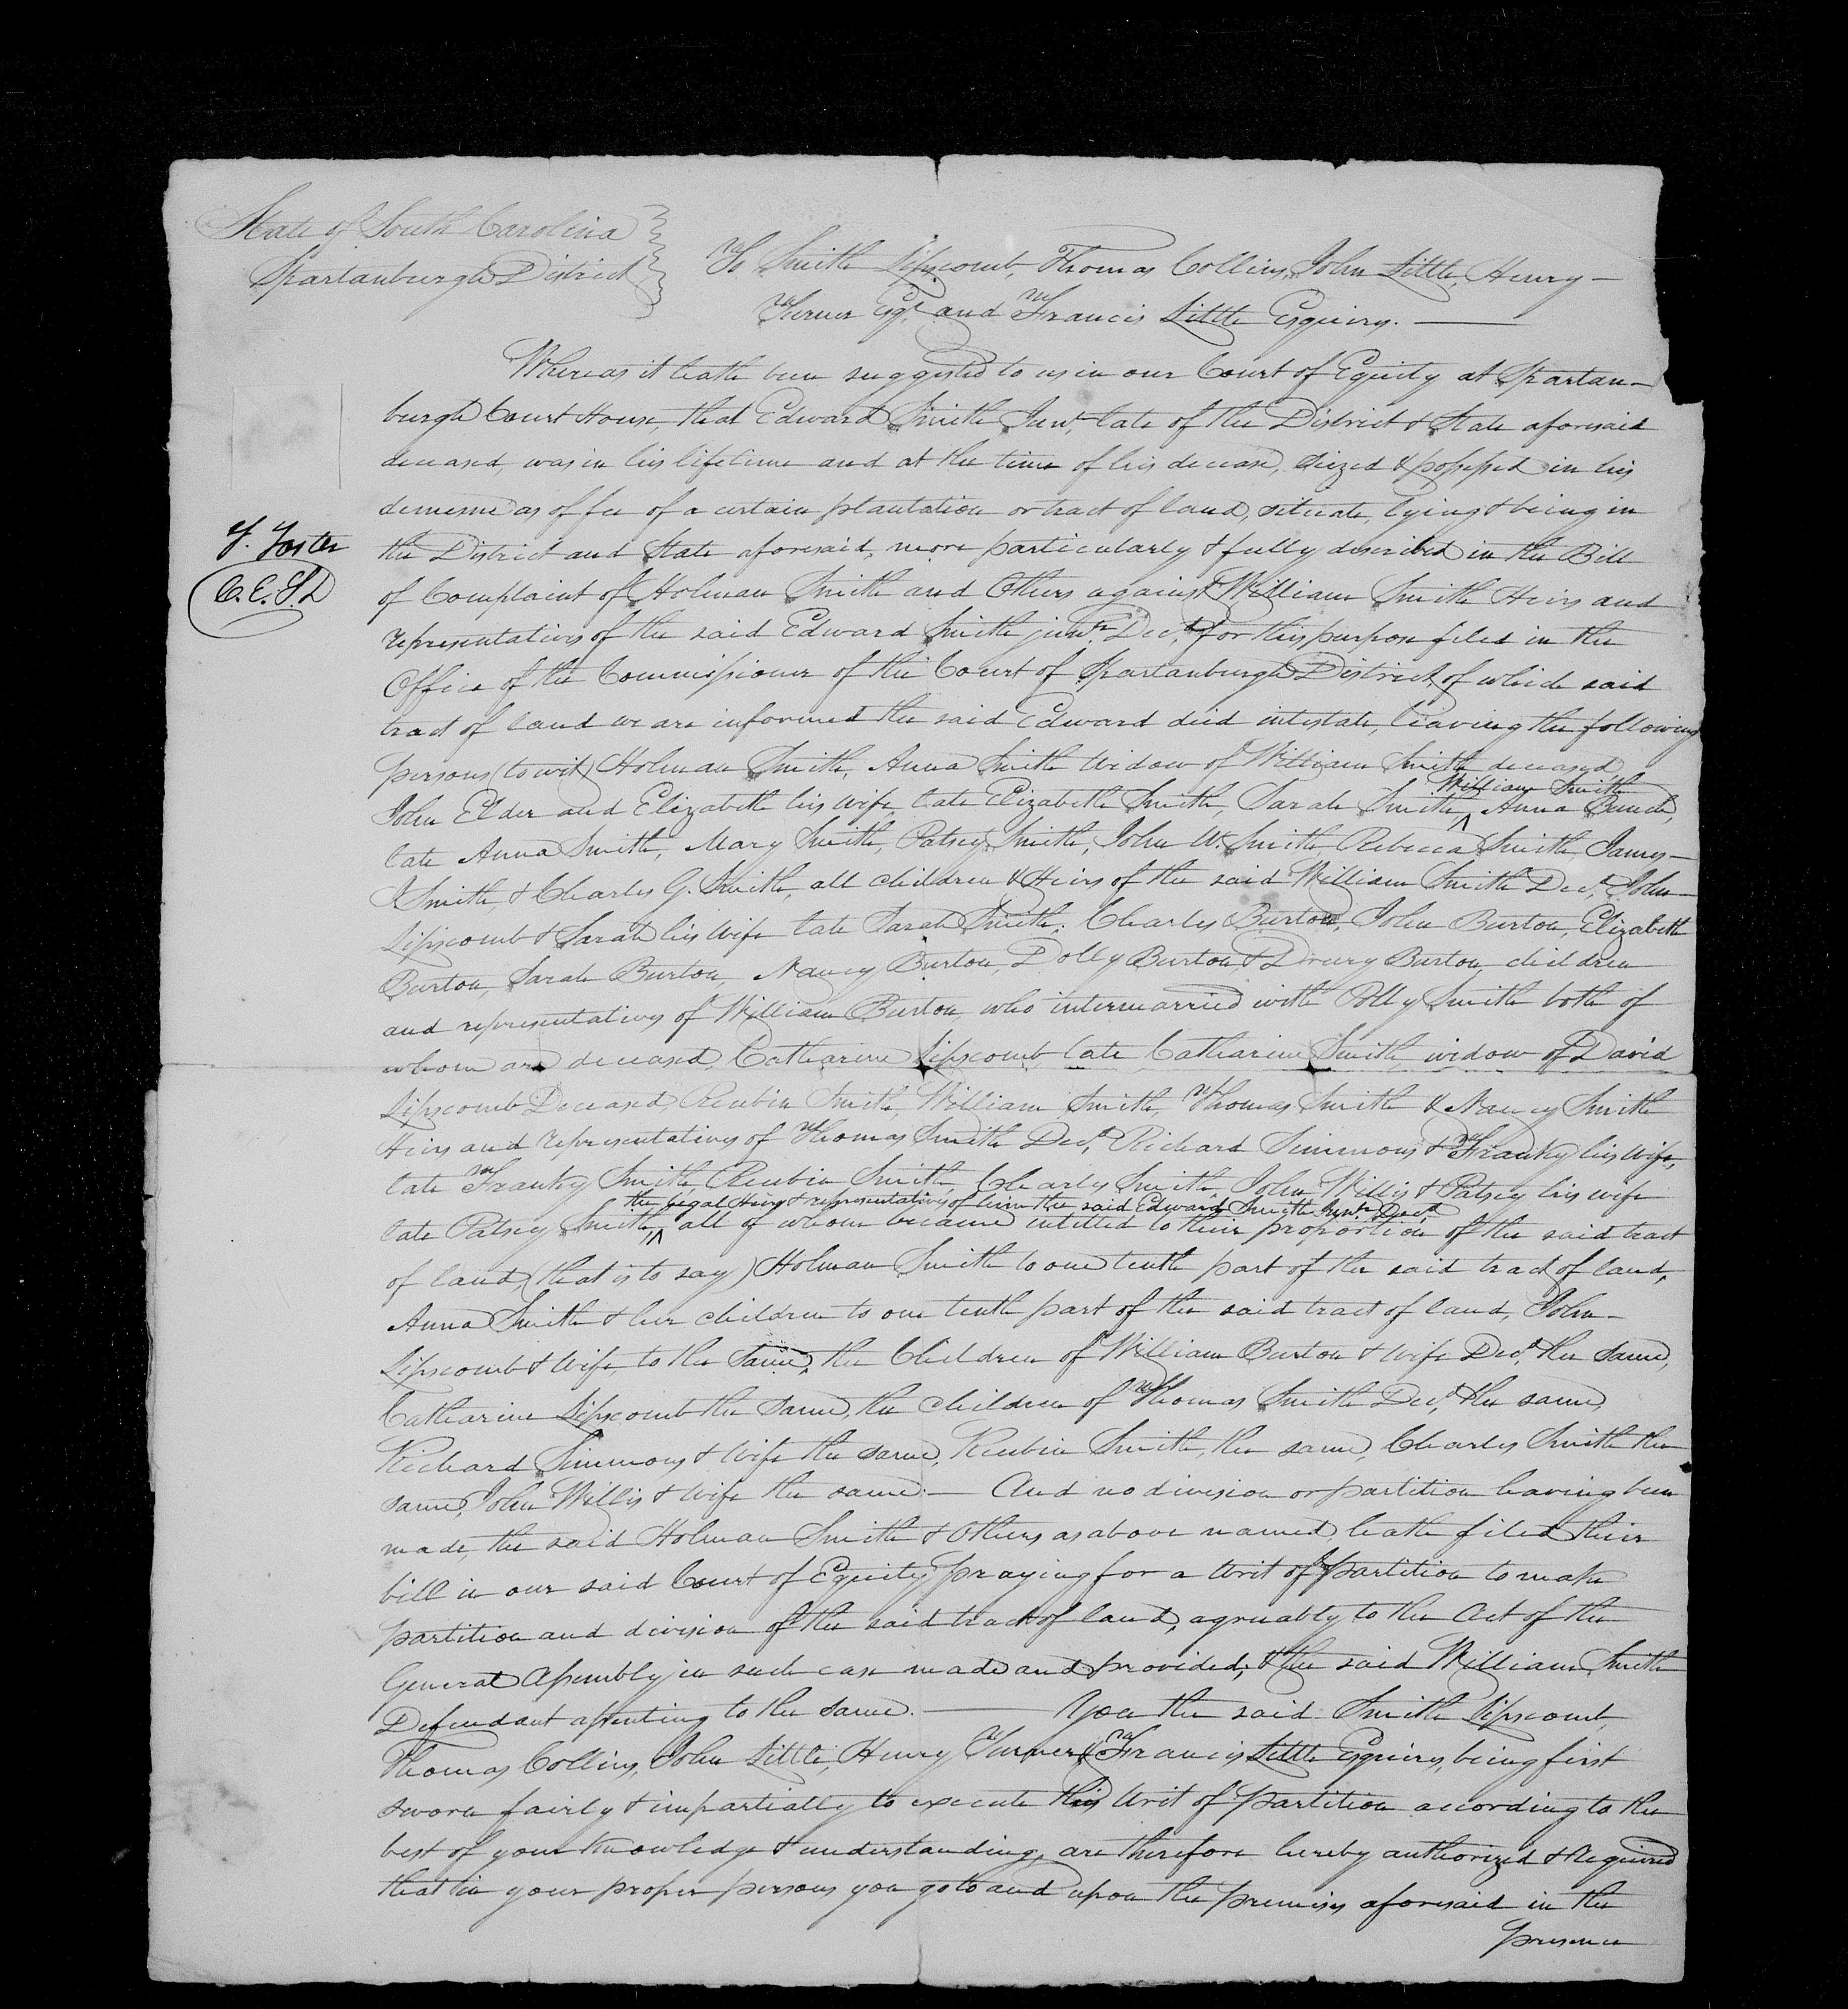 State of South Carolina
Spartanburgh District
To Smith Lipscomb, Thomas Collins, John Little, Henry
Turner Esqr. and Francis Little Esquires.
Whereas it hath been suggested to us in our Court of Equity at Spartan-
burgh Court House, that Edward Smith Junr. late of the District & State aforesaid
deceased, was in his lifetime and at the time of his decease, seized & possessed in his
demesne as of fee of a certain plantation or tract of land, situate, lying & being in
the District and State aforesaid, more particularly & fully described in the Bill
of Complaint of Holman Smith and Others against William Smith Heirs and
representatives of the said Edward Smith junr. Decd. for this purpose filed in the
Office of the Commissioner of the Court of Spartanburgh District, of which said
tract of land we are informed the said Edward died intestate, leaving the following
persons (to wit) Holman Smith, Anna Smith Widow of William Smith deceased
John Elder and Elizabeth his wife, late Elizabeth Smith, Sarah Smith, ^ William Smith Anna Bunch,
late Anna Smith, Mary Smith, Patsey Smith, John W. Smith, Rebecca Smith, James
Smith, & Charles G. Smith, all children & Heirs of the said William Smith Decd. John
Lipscomb & Sarah his wife late Sarah Smith, Charles Burton, John Burton, Elizabeth
Burton, Sarah Burton, Nancy Burton, Dolly Burton & Drury Burton, children
and representatives of William Burton, who intermarried with Polly Smith both of
whom are deceased, Catharine Lipscomb, late Catharine Smith, widow of David
Lipscomb Deceased, Reubin Smith, William Smith, Thomas Smith & Nancy Smith
Heirs and representatives of Thomas Smith Decd. Richard Simmons & Franky his wife,
late Franky Smith, Reubin Smith, Charles Smith, John Willis & Patsey his wife
the legal Heirs & representatives of him the said Edward Smith junr. Decd.
late Patsey Smith, ^ all of whom became intitled to their proportion of the said tract
of land, (that is to say) Holman Smith to one tenth part of the said tract of land,
Anna Smith & her children to one tenth part of the said tract of land, John
Lipscomb & wife, to the same, the Children of William Burton & wife Decd. the same,
Catharine Lipscomb the same, the children of Thomas Smith Decd. the same,
Richard Simmons & wife the same, Reubin Smith, the same, Charles Smith the
same, John Willis & wife the same. — And no division or partition having been
made, the said Holman Smith & Others as above named, hath filed their
bill in our said Court of Equity praying for a Writ of partition to make
partition and division of the said tract of land, agreeably to the Act of the
General Assembly in such case made and provided, & the said William Smith
Defendant assenting to the same. — You the said Smith Lipscomb,
Thomas Collins, John Little, Henry Turner, & Francis Little Esquires, being first
sworn fairly & impartially to execute this Writ of partition according to the
best of your knowledge & understanding, are therefore hereby authorized & required
that in your proper persons you go to and upon the premises aforesaid in the
presence
T. Foster
C.E.S.D